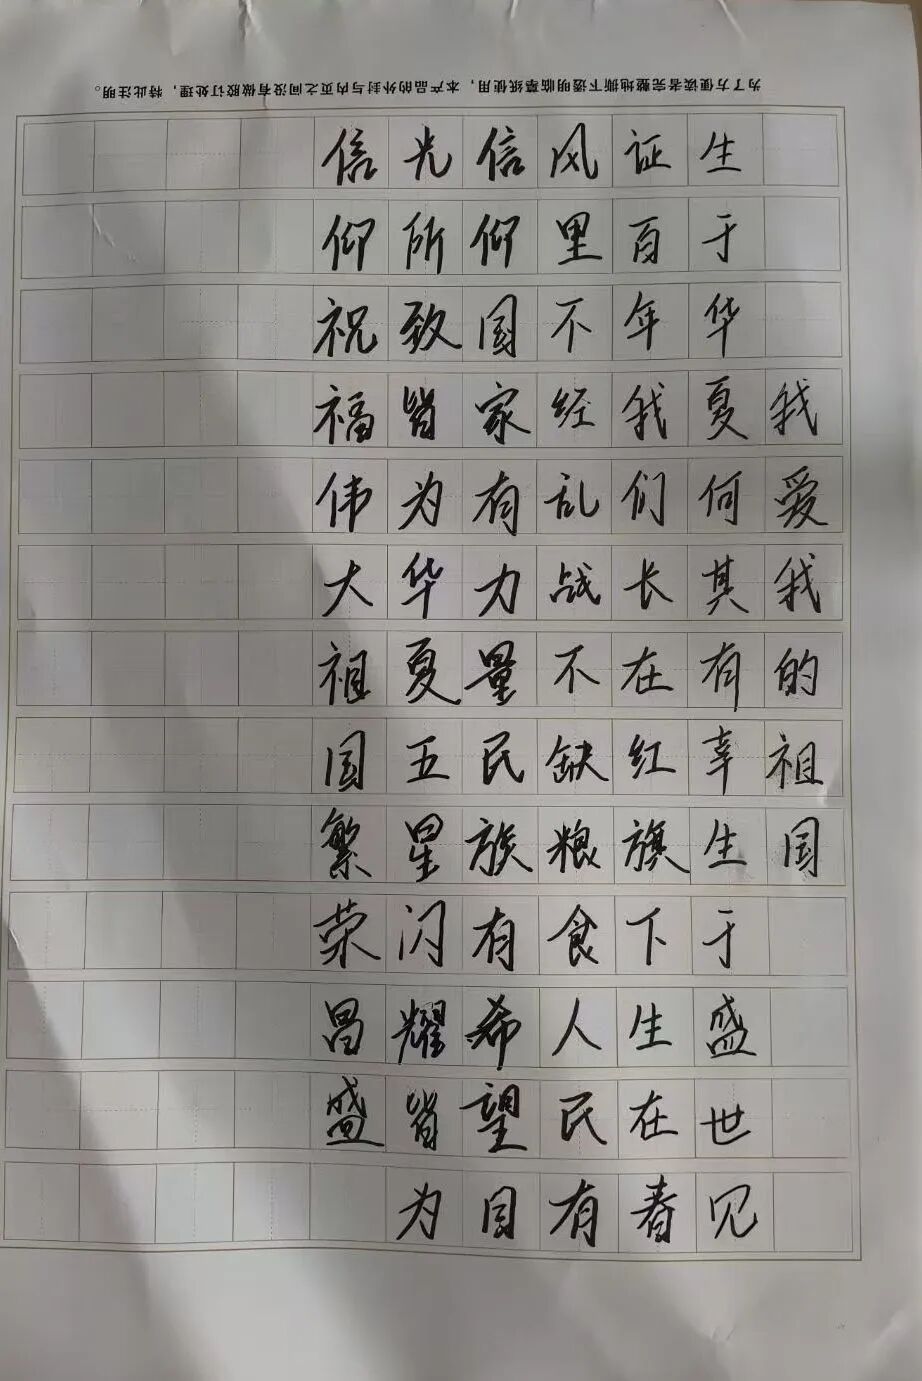 为了方便读者完整地撕下透明临摹纸使用，本产品的外封与内页之间没有做胶订处理，特此注明。
我爱我的祖国
生于华夏何其有幸生于盛世见
证百年我们长在红旗下生在春
风里不经乱战不缺粮食人民有
信仰国家有力量民族有希望目
光所致皆为华夏五星闪耀皆为
信仰祝福伟大祖国繁荣昌盛